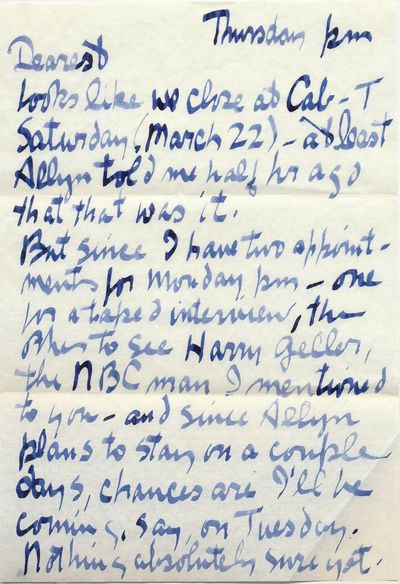 Thursday pm
Dearest
Looks like we close at Cab-T
Saturday (March 22) - at least
Allyn told me half hr ago
that that was it.
But since I have two appoint-
ments for Monday pm - one
for a taped interview, the
other to see Harry Geller,
the NBC man I mentioned
to you - and since Allyn
plans to stay on a couple
days, chances are I'll be
coming, say, on Tuesday.
Nothing absolutely sure yet.